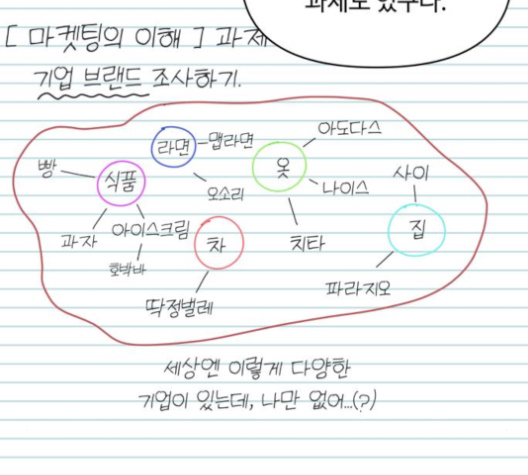 과제도 있구나.
[ 마켓팅의 이해 ] 과제
기업 브랜드 조사하기.
라면
맵라면
오소리
아도다스
옷
나이스
치타
사이
집
파라지오
빵
식품
과자
아이스크림
호박바
차
딱정벌레
세상엔 이렇게 다양한
기업이 있는데, 나만 없어..(?)